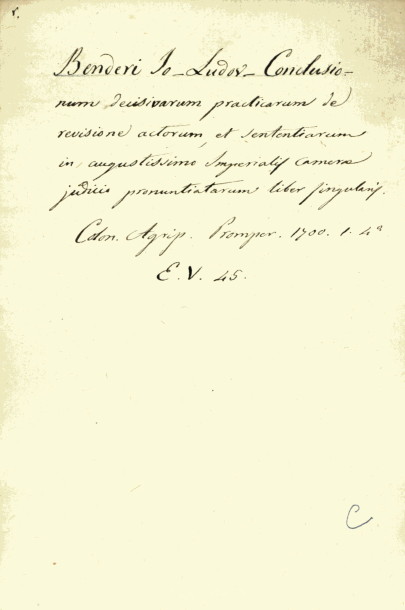 r.
Benderi Jo_Ludov_ Conclusio=
num decisivarum practicarum de
revisione actorum, et sententiarum
in augustissimo Imperialis camerae
judicio pronuntiatarum liber singularis.
Colon. Agrip. Promper. 1700. 1. 4º
E. V. 45.
C